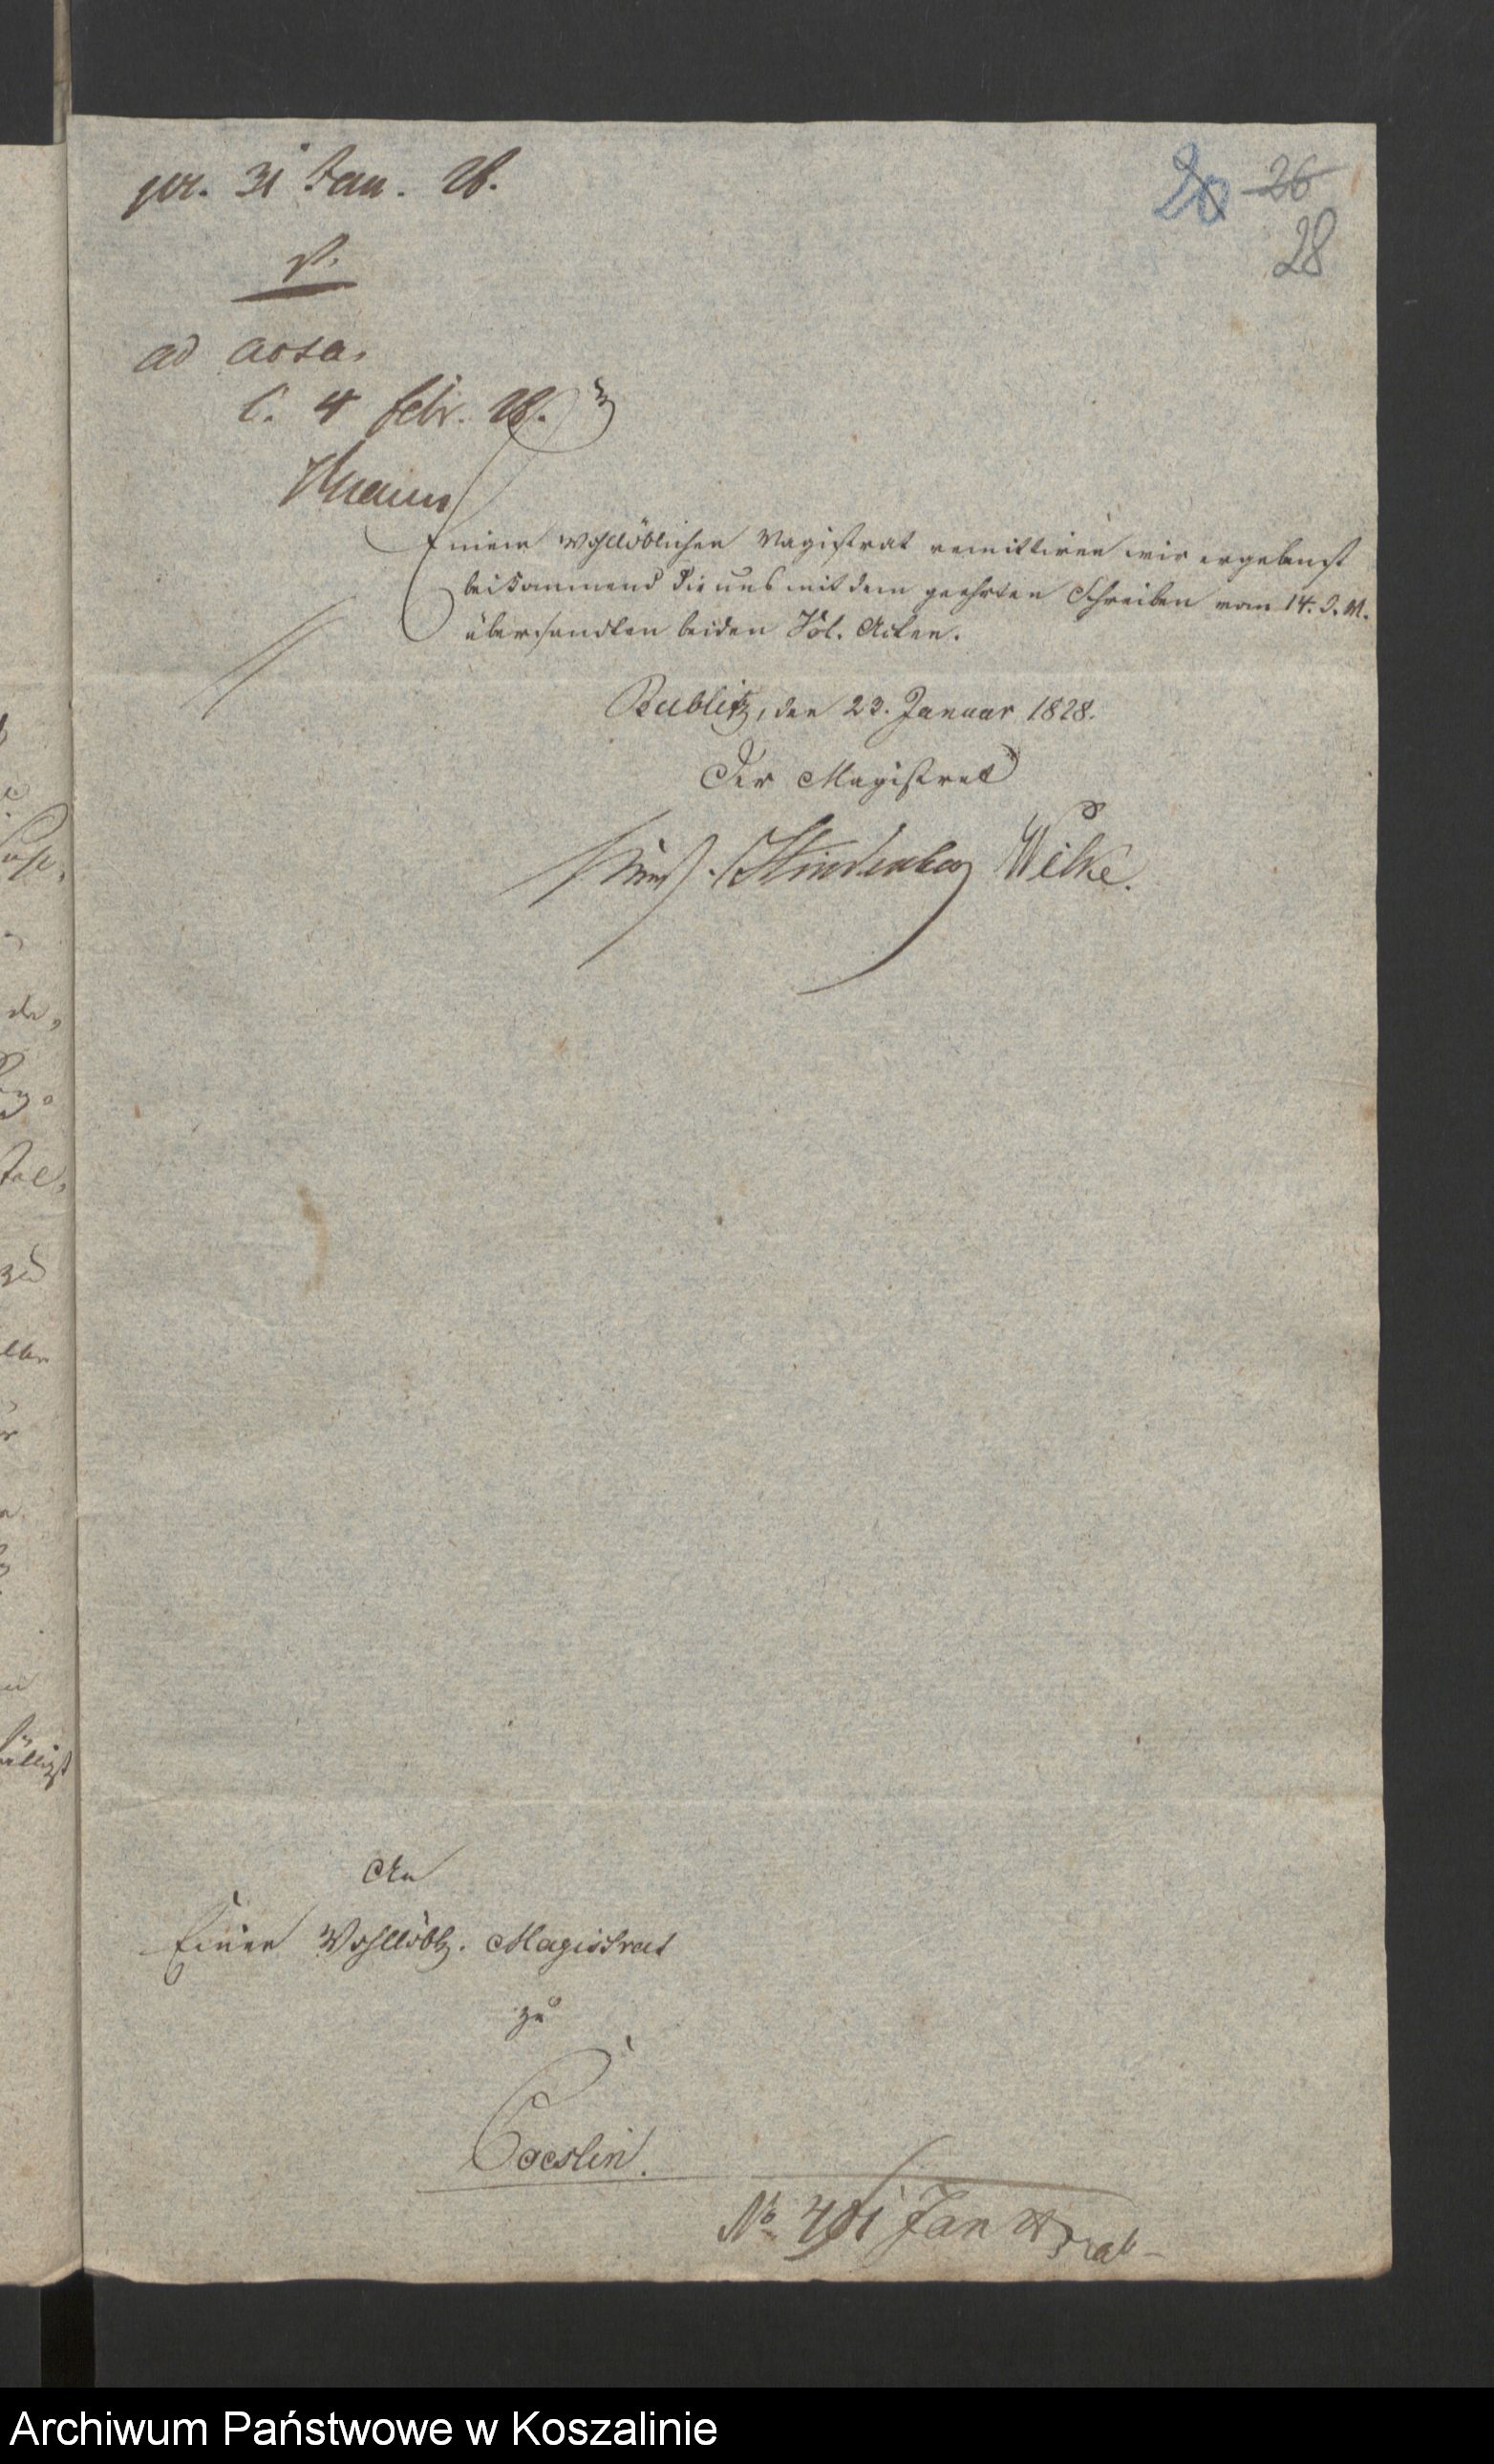 pr. 31 Jan. 28.
20 26
28
V.
ad acta.
C. 4 febr. 28.
Einem Wohllöblichen Magistrat remittiren wir ergebenst
beikommend die uns mit dem geehrten Schreiben vom 14. d. M.
übersandten beiden Vol. Acten.
Bublitz, den 23. Januar 1828.
Der Magistrat
Hindenberg Wilke.
An
Einen Wohllöbl. Magistrat
zu
Coeslin.
No. Jan
Archiwum Państwowe w Koszalinie